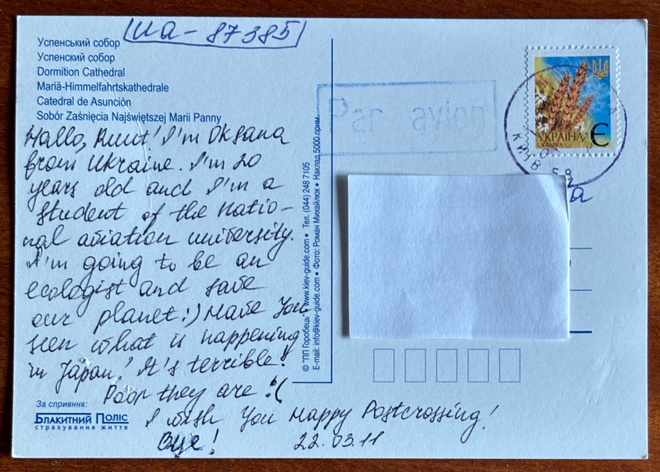 UA-87385
Успенський собор
Успенский собор
Dormition Cathedral
Mariä-Himmelfahrtskathedrale
Catedral de Asunción
Sobór Zaśnięcia Najświętszej Marii Panny
Hallo, Kuut! I'm Oksana
from Ukraine. I'm 20
years old and I'm a
student of the natio-
nal aviation university.
I'm going to be an
ecologist and save
our planet:) Have you
seen what is happening
in Japan? It's terrible!
Poor they are :(
I wish you Happy Postcrossing!
22.03.11
За сприяння:
Блакитний Поліс
страхування життя
© "ПП Горобець" • www.kiev-guide.com • Тел. (044) 248 7105
E-mail: info@kiev-guide.com • Фото: Роман Михайлюк • Наклад 5000 прим
Par avion
УКРАЇНА
UKRAINA
Є
КИЇВ